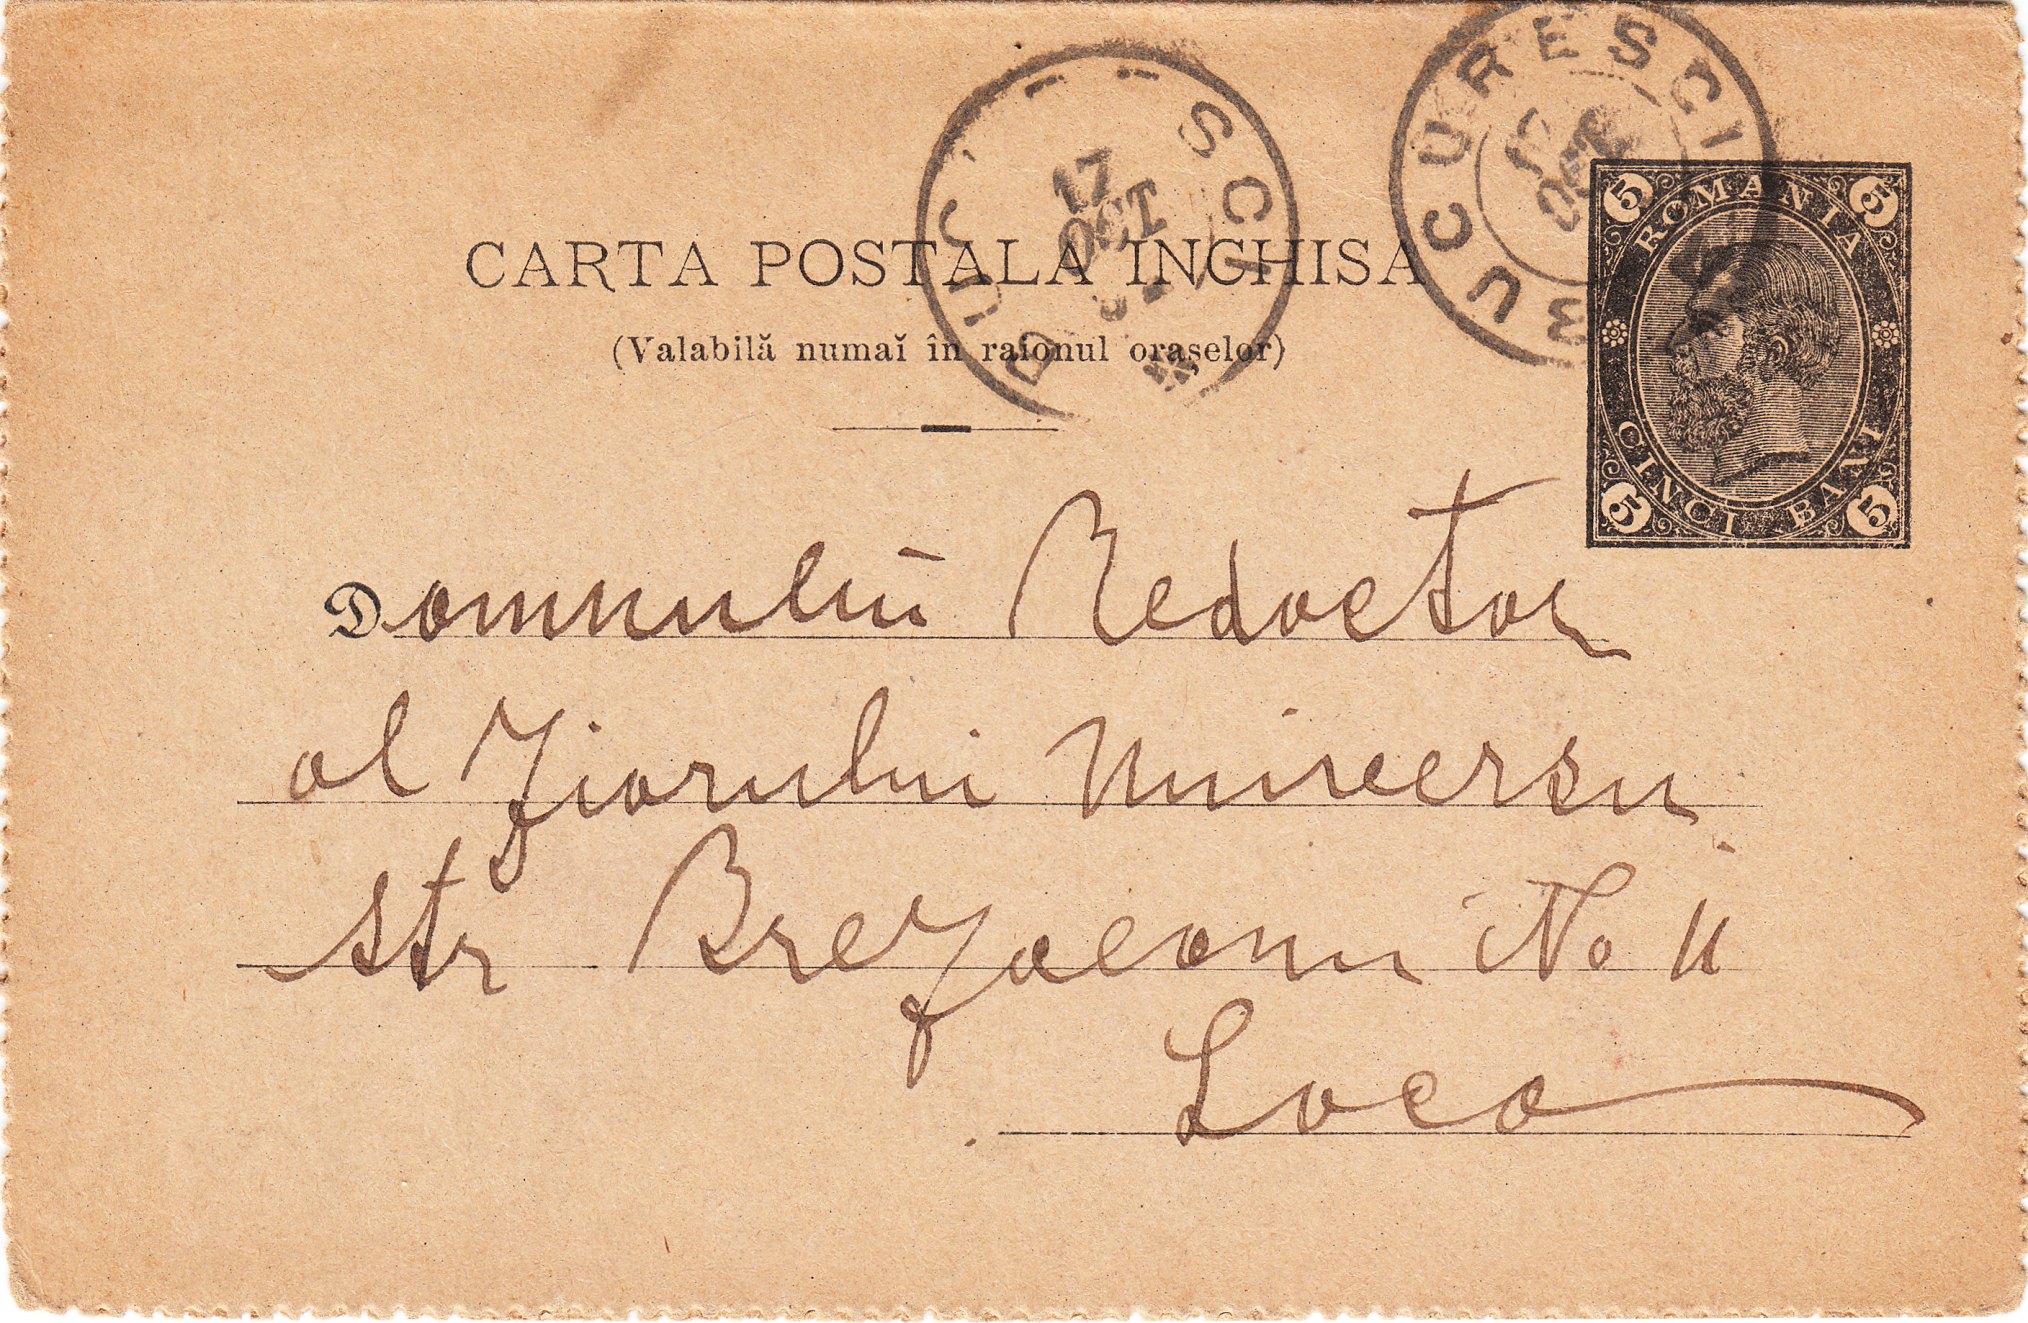 BUC SCI
17
OCT
BUCURESCI
OCT
CARTA POSTALA INCHISA
(Valabilă numaĭ în raionul orașelor)
5 ROMANIA 5
5 CINCI BANI 5
Domnuluĭ Redactor
al Ziarului Universu
str Brezoeanu No 11
Loco